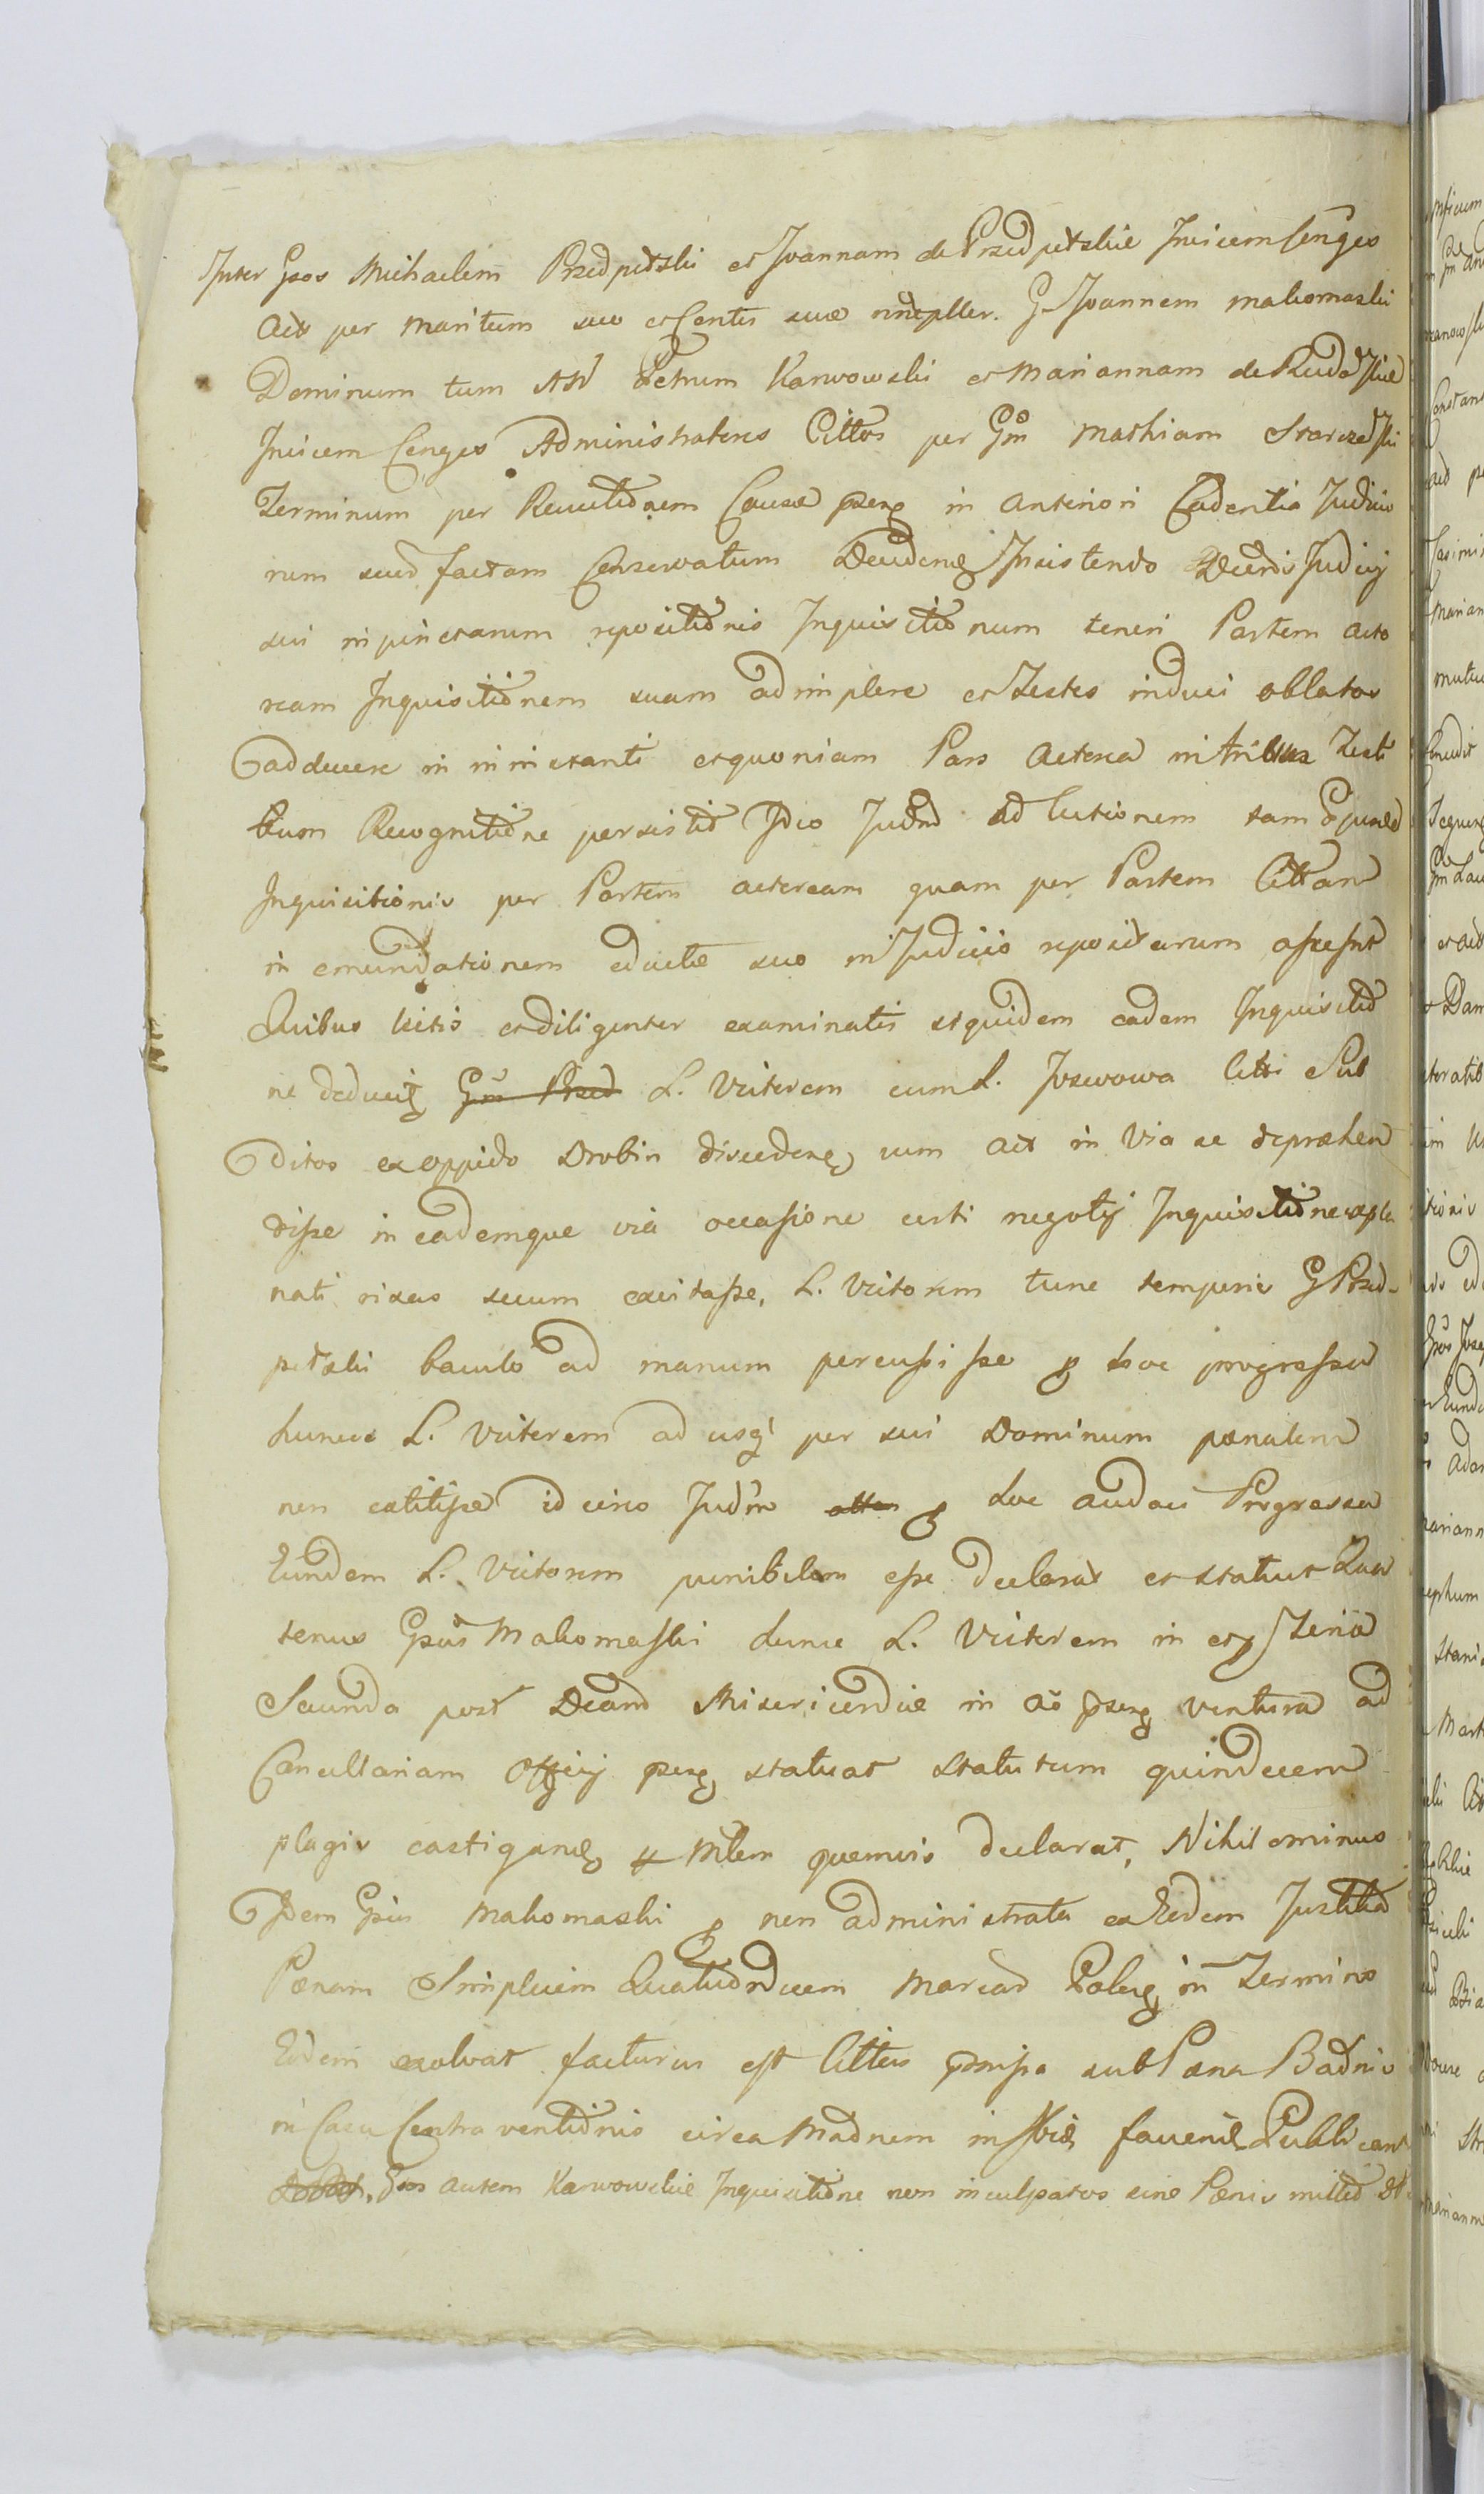 Inter Gsos Michaelem Przedpełski et Joannam de Przedpełskie Invicem Conges
Act per maritum suo et Contis suae nnepller. G Joannem Makomaski
Dominum tum AW Petrum Karwowski et Mariannam de Ruda
Invicem Conges Administratores Cittos per Gm Mathiam
Terminum per Remitionem Causae psens in anteriori Cadentia Judicio
rum suor factam Conservatum Decidens Insistendo Decretis Judicij
sui repositionis Inquisitionum teneri Partem acto
ream Inquisitionem suam adimplere et Testes induci oblatos
adducere in instanti et quoniam Pars Actorea in tribus Testi
bium Recognitione persistit Ideo Judm ad lectionem tam
Inquisitionis per Partem actoream quam per Partem Cittam
in emundationem eductae suo in Judicio repositarum
Quibus lectis et diligenter examinatis siquidem eadem Inquisitio
ne deducit Gm Przed L. Victorem cum L. Jozwowa Citti Sub
ditos ex oppido Drobin discedens cum Act in Via se deprehen
disse in eademque via occasione certi negotij Inquisitione expla
nati rixas secum excitasse, L. Victorem tunc temporis G Przed-
pełski baculo ad manum percussisse p hoc progressu
huncce L. Victorem ad usq per sui Dominum paenatum
non extitisse idcirco Judm p hoc audaci Progressu
Eundem L. Victorem punibilem esse declarat et statuit Qua
tenus Gsus Makomaski hunc L. Victorem in et p Feria
Secunda post Dcam Misericordiae in ao psens ventura ad
Cancellariam Officij psens statuat statutum quindecem
plagis castigans p Mlem quemvis declarat, Nihilominus
Idem Gsus Makomaski p non administrata ex Eodem Justitia
Paenam Simplicem Quatuordecem Marcas Polns in Termino
Eodem exolvat facturus est Cittus pmissa sub Paena Bannis
in Casu Contraventionis circa Madnem favens Publicans
Gsos autem Karwowskie Inquisitione non inculpatos sine Paenis mittit